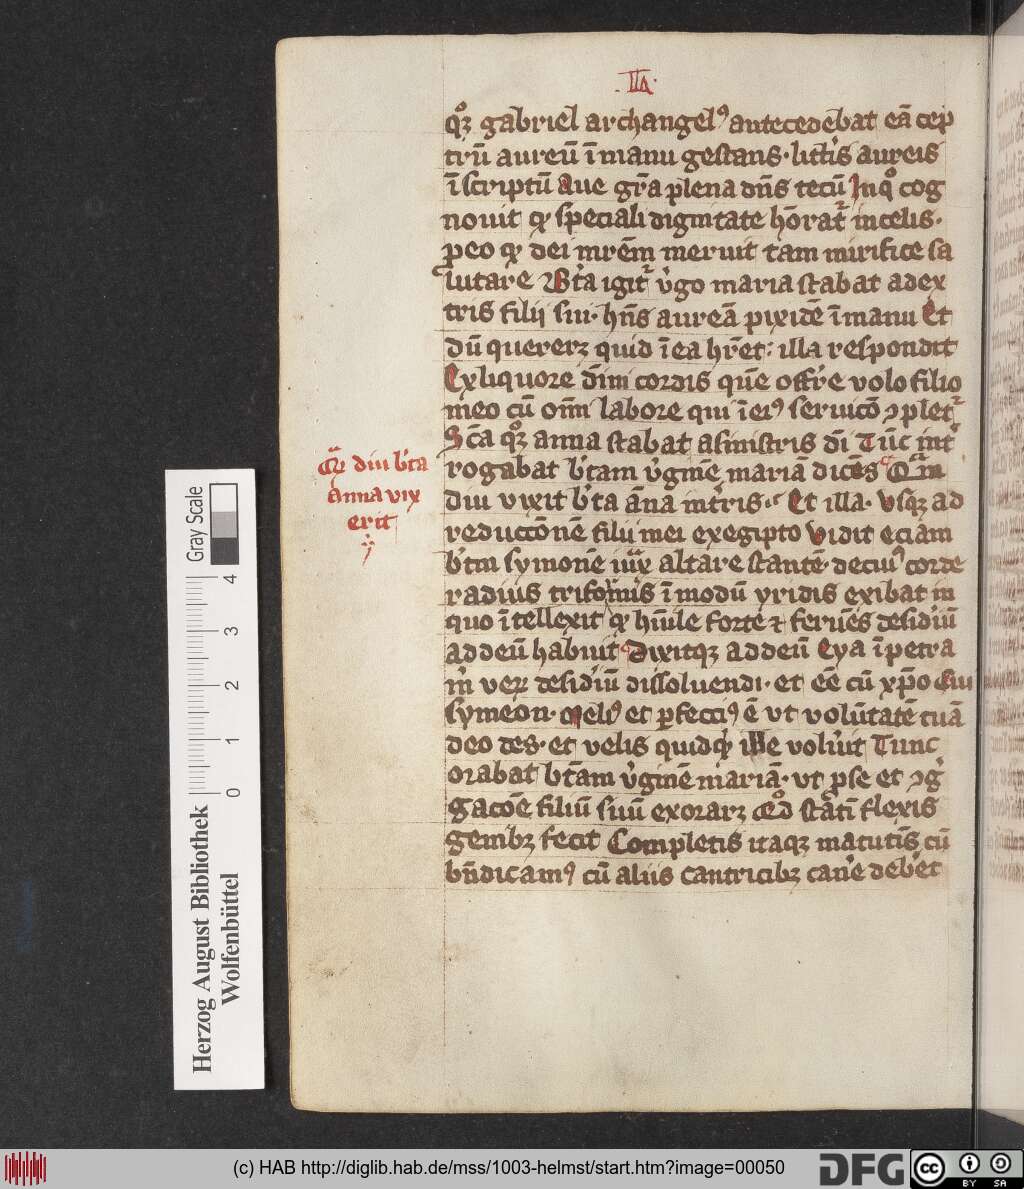 .IIA.
qꝫ gabriel archangelꝰ antecedebat eā cep
trū aureū ī manu gestans· litt̄is aureis
īscriptū Aue gr̄a plena dn̄s tecū In qͦ cog
nouit ꝙ speciali dignitate honorat᷑ in celis·
ꝓ eo ꝙ dei mr̄em meruit tam mirifice sa
lutare Bt̄a igit᷑ v̓go maria stabat a dex
tris filij sui· hn̄s aureā pixidē ī manu Et
dū quererꝫ quid ī ea hr̄et: illa respondit
Ex liquore dīni cordis quē offr̄e volo filio
meo cū om̄i labore qui ī eiꝰ seruicō ꝯplet᷑
Sc̄a qꝫ anna stabat a sinistris dn̄i Tūc int̄
rogabat bt̄am v̓ginē mariā dicēs Qͣm
diu vixit bt̄a āna mt̄ris· Et illa· vsqꝫ ad
reductōnē filij mei ex egipto Vidit eciam
bt̄m symonē iux̄ altare stantē· de cuiꝰ corde
radius triformis ī modū yridis exibat in
quo ītellexit ꝙ hūile forte ⁊ feruēs desid̓iū
ad deū habuit Dixitqꝫ ad deū Eya īpetra
m̄ veꝝ desid̓iū dissoluendi· et eē cū xp̄o Cui
symeon· Meliꝰ et ꝑfecciꝰ ē vt volūtatē tuā
deo des· et velis quidqͥd ille voluit Tunc
orabat bt̄am v̓ginē mariā· vt ꝓ se et ꝯg̓
gacōe filiū suū exorarꝫ Qͦd statī flexis
genibꝫ fecit Completis itaqꝫ matutīs cū
bn̄dicamꝰ cū aliis cantricibꝫ can̓e deb̓et
Qͣm diu bt̄a
Anna vix
erit
Herzog August Bibliothek
Wolfenbüttel
Gray Scale
0 1 2 3 4
(c) HAB http://diglib.hab.de/mss/1003-helmst/start.htm?image=00050
DFG
cc
BY SA